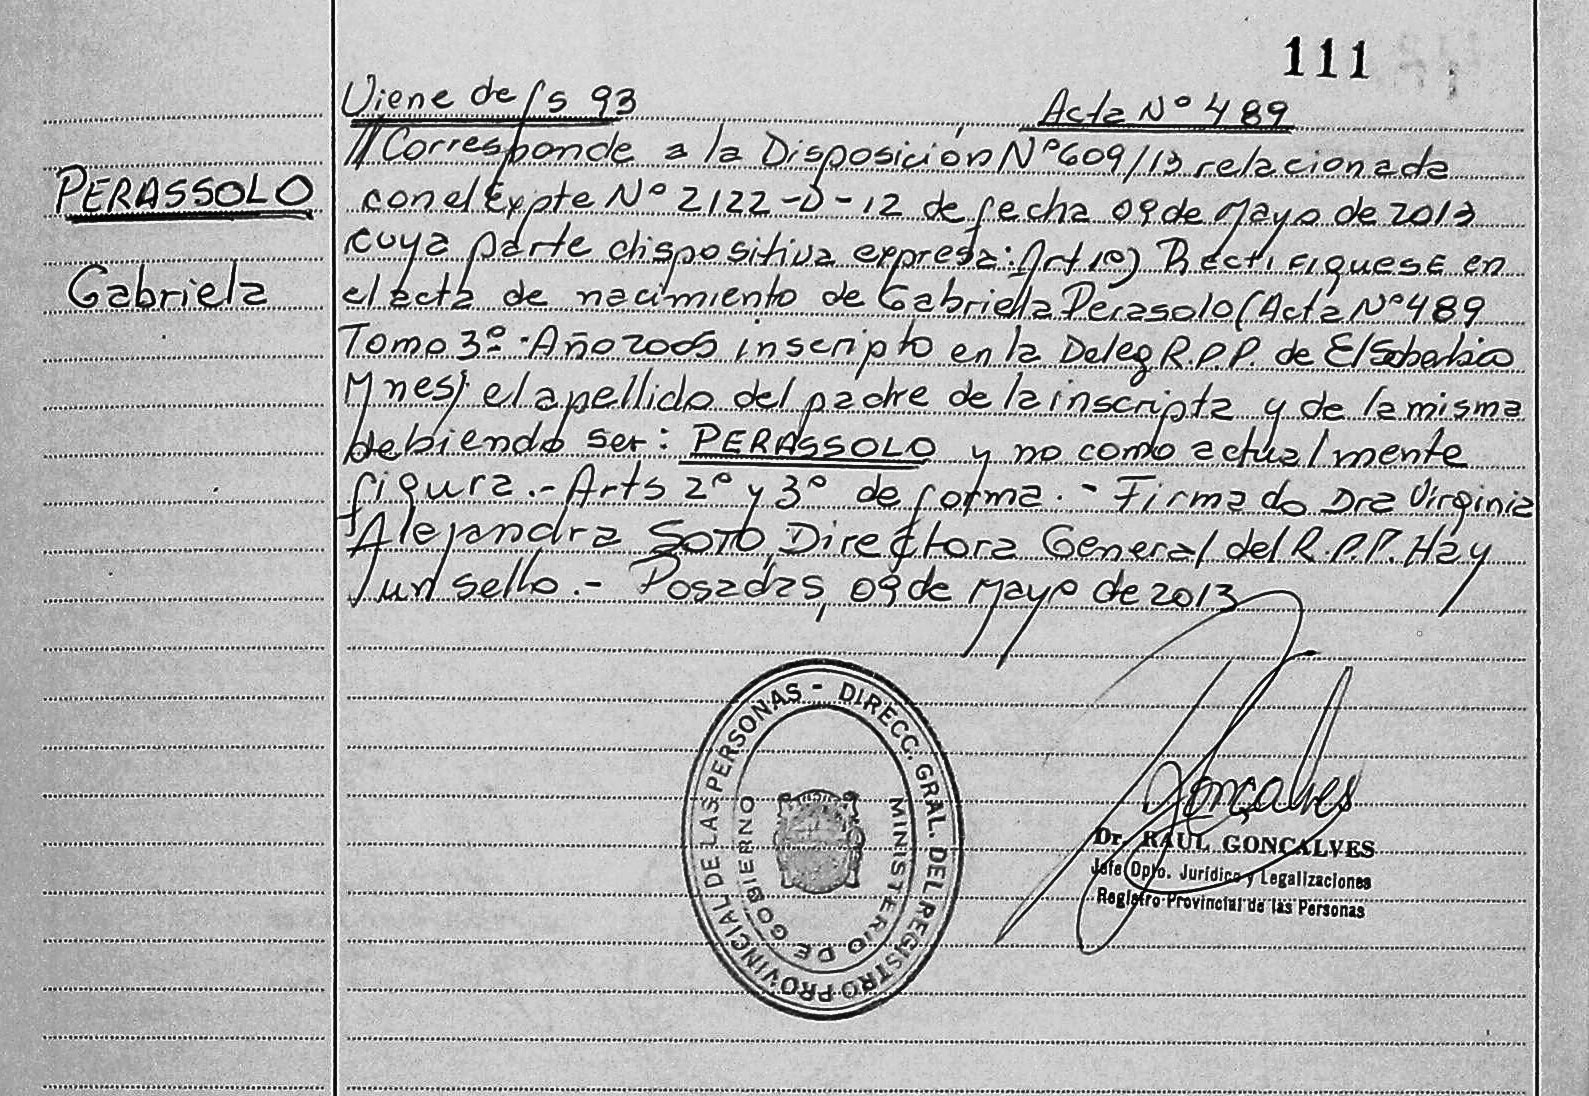 111
Viene de fs 93
Acta Nº 489
PERASSOLO
Gabriela
// Corresponde a la Disposición Nº 609/13 relacionada
con el Expte Nº 2122-D-12 de fecha 09 de Mayo de 2013
cuya parte dispositiva expresa: Art 1º) Rectifiquese en
el acta de nacimiento de Gabriella Perasolo (Acta Nº 489
Tomo 3º - Año 2005 inscripto en la Deleg R.P.P. de El Soberbio
Mnes) el apellido del padre de la inscripta y de la misma
debiendo ser: PERASSOLO y no como actualmente
figura.- Arts 2º y 3º de forma.- Firmado Dra Virginia
Alejandra SOTO, Directora General del R.P.P. Hay
un sello.- Posadas, 09 de Mayo de 2013
DIRECC. GRAL. DEL REGISTRO PROVINCIAL DE LAS PERSONAS -
MINISTERIO DE GOBIERNO
Gonçalves
Dr. RAUL GONCALVES
Jefe Dpto. Jurídico y Legalizaciones
Registro Provincial de las Personas